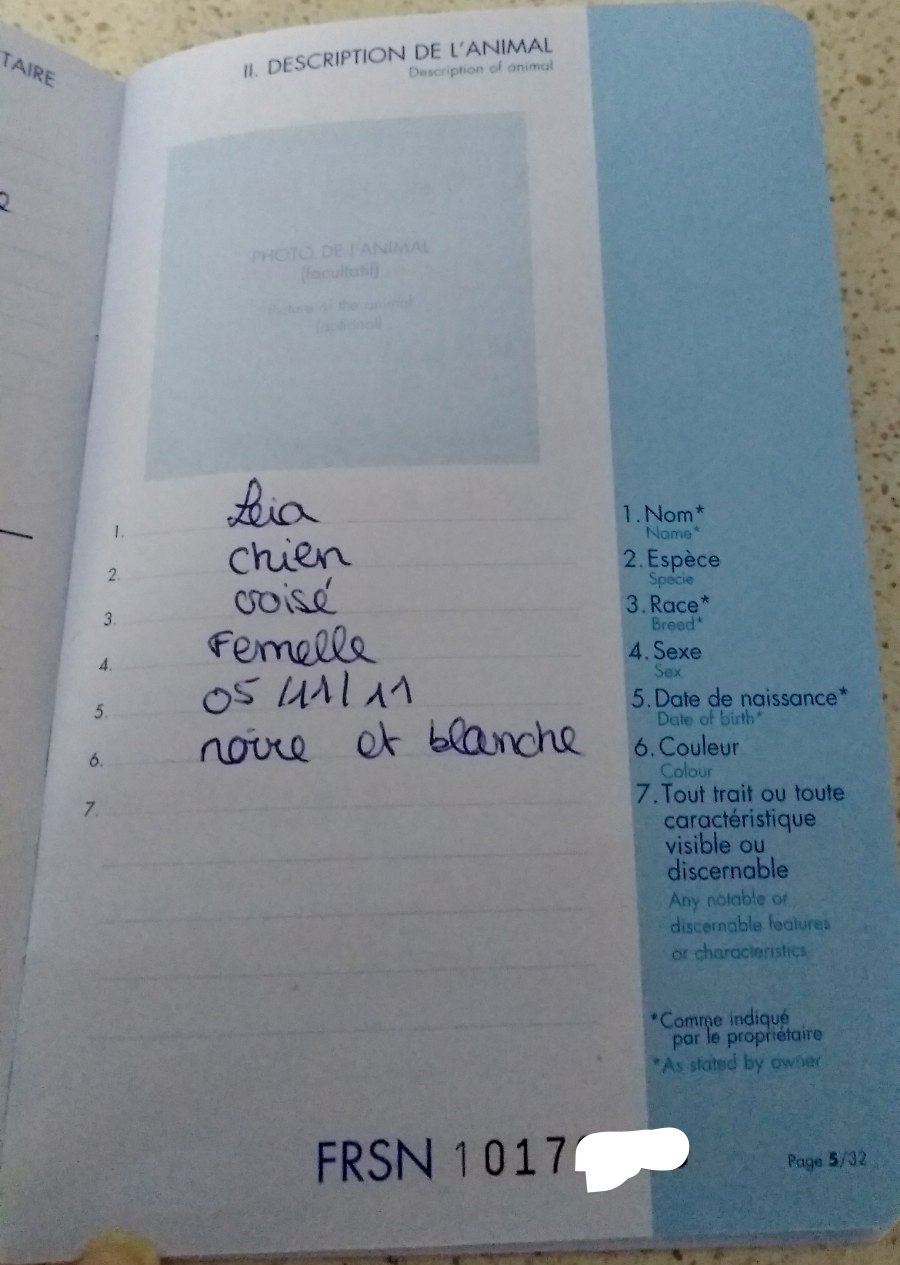 TAIRE
II. DESCRIPTION DE L'ANIMAL
Description of animal
PHOTO DE L'ANIMAL
(facultatif)
Picture of the animal
(optional)
1. Leia
2. chien
3. croisé
4. Femelle
5. 05/11/11
6. noire et blanche
7.
1. Nom*
Name*
2. Espèce
Specie
3. Race*
Breed*
4. Sexe
Sex
5. Date de naissance*
Date of birth*
6. Couleur
Colour
7. Tout trait ou toute
caractéristique
visible ou
discernable
Any notable or
discernable features
or characteristics
*Comme indiqué
par le propriétaire
*As stated by owner
FRSN 1017
Page 5/32